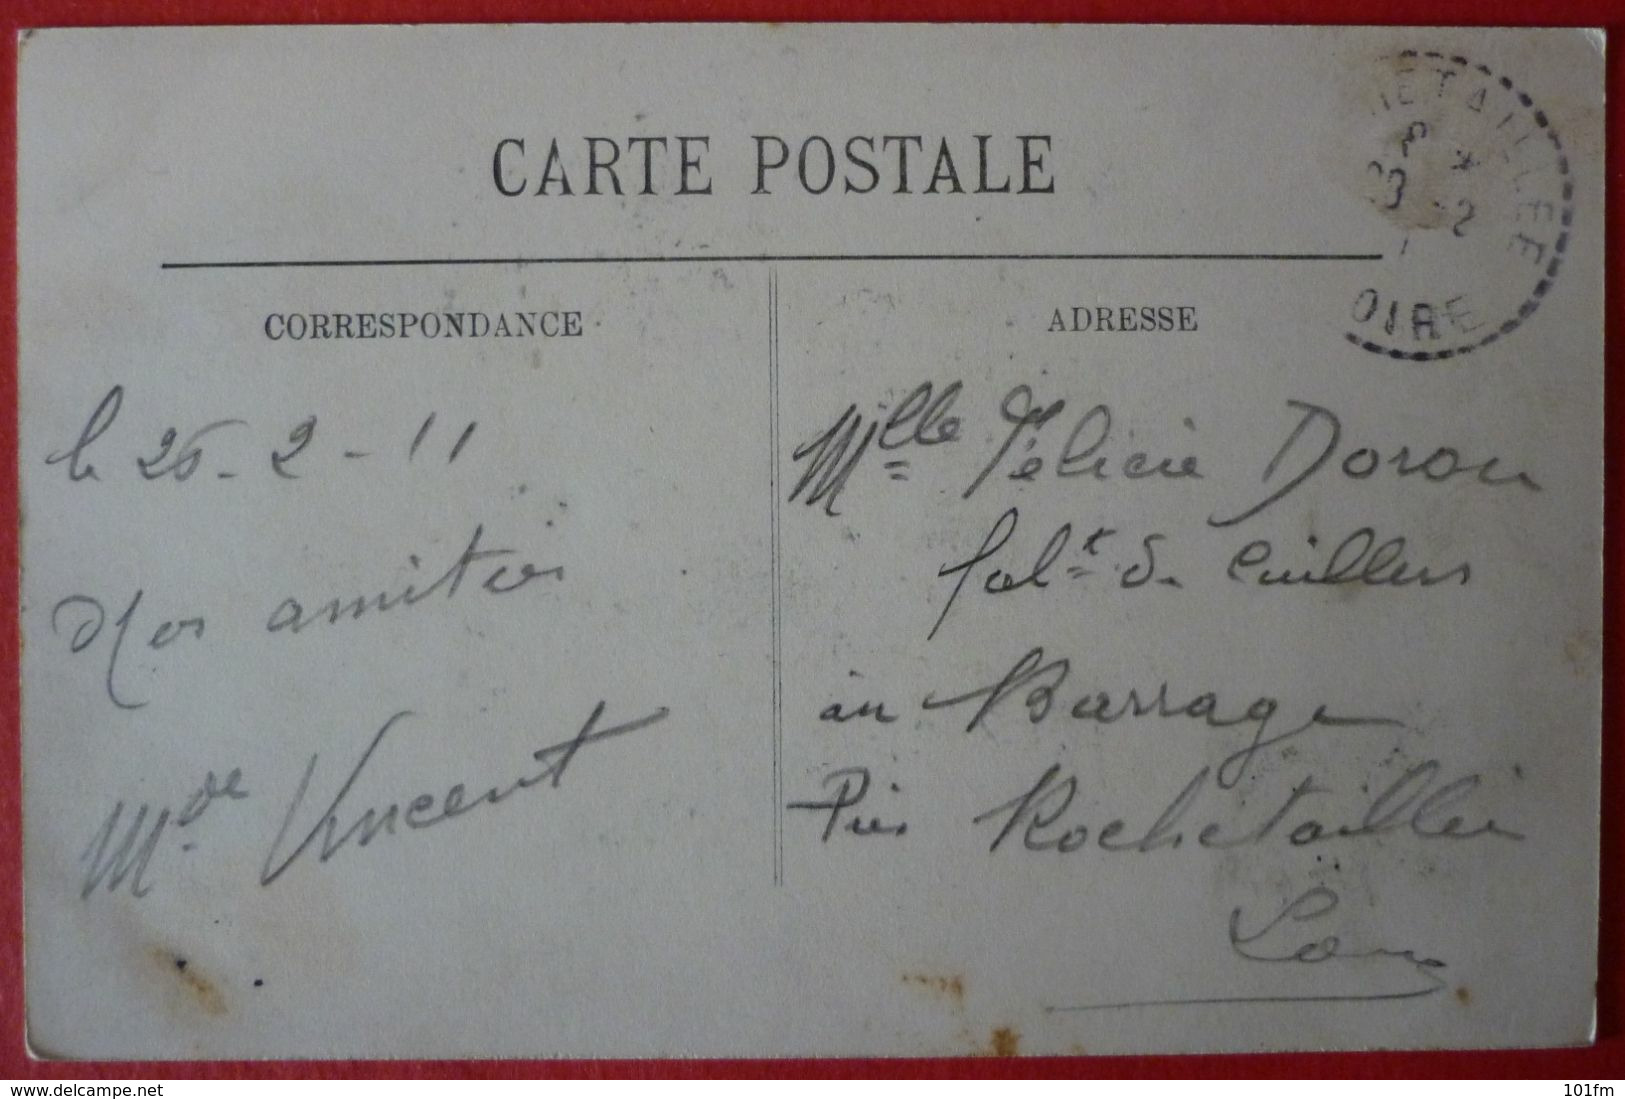 CARTE POSTALE
CORRESPONDANCE
le 26-2-11
Nos amitiés
M.de Vincent
ADRESSE
Mlle Félicie Doron
fabt de Cuillers
au Barrage
Près Rochetaillée
Loire
ETAILLEE
OIRE
delcampe.net
101fm